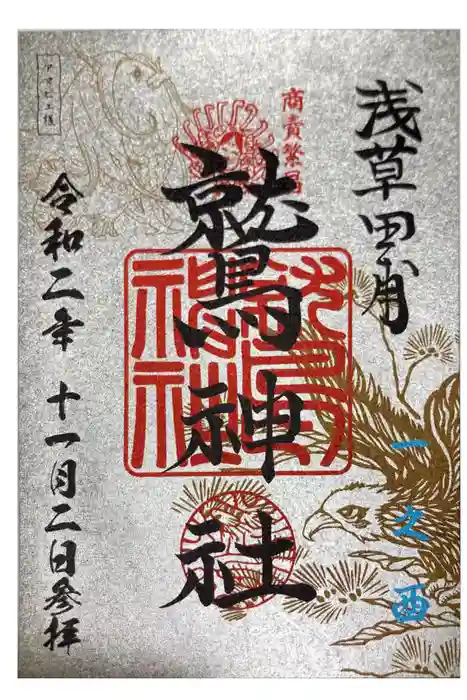 浅草田甫
一之酉
商賣繁昌
鷲神社
令和二年 十一月二日参拝
アマビエ様